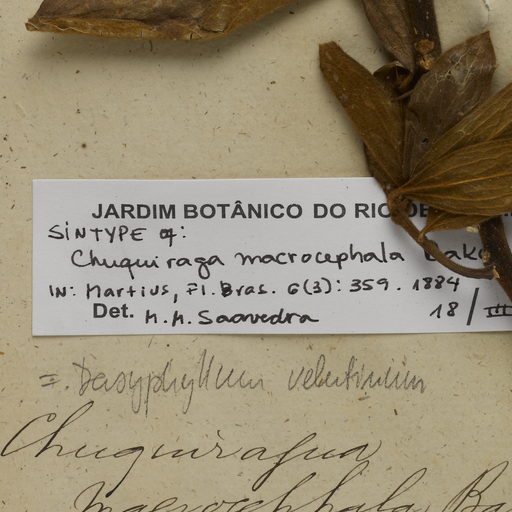 JARDIM BOTÂNICO DO RIO DE
SINTYPE of:
Chuquiraga macrocephala Bake
IN: Martius, Fl. Bras. 6(3): 359. 1884
Det. M.M. Saavedra 18/III
= Dasyphyllum velutinum
Chuquiragua
macrocephala Ba